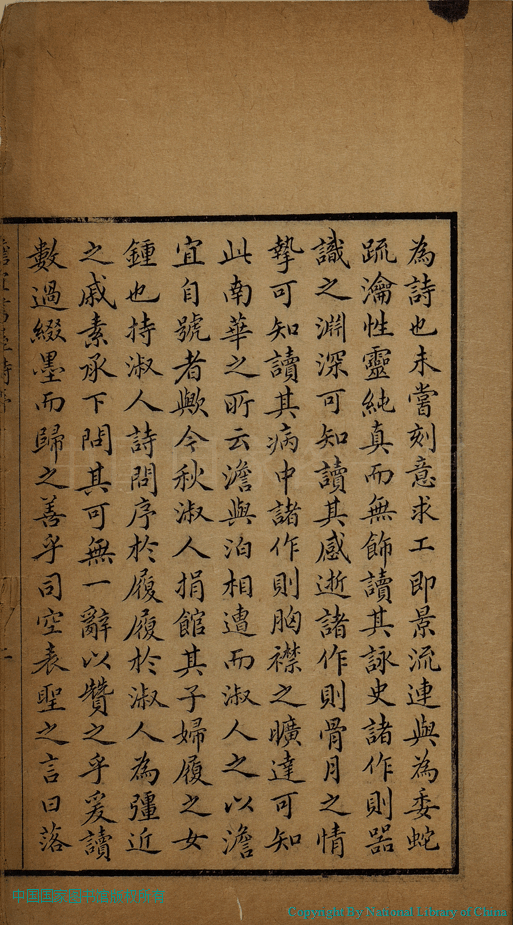 為詩也未嘗刻意求工即景流連與為委蛇
疏瀹性靈純真而無飾讀其詠史諸作則器
識之淵深可知讀其感逝諸作則骨月之情
摯可知讀其病中諸作則胸襟之曠達可知
此南華之所云澹與泊相遭而淑人之以澹
宜自號者歟今秋淑人捐館其子婦履之女
鍾也持淑人詩問序於履履於淑人為彊近
之戚素承下問其可無一辭以贊之乎爰讀
數過綴墨而歸之善乎司空表聖之言曰落
Copyright By National Library of China